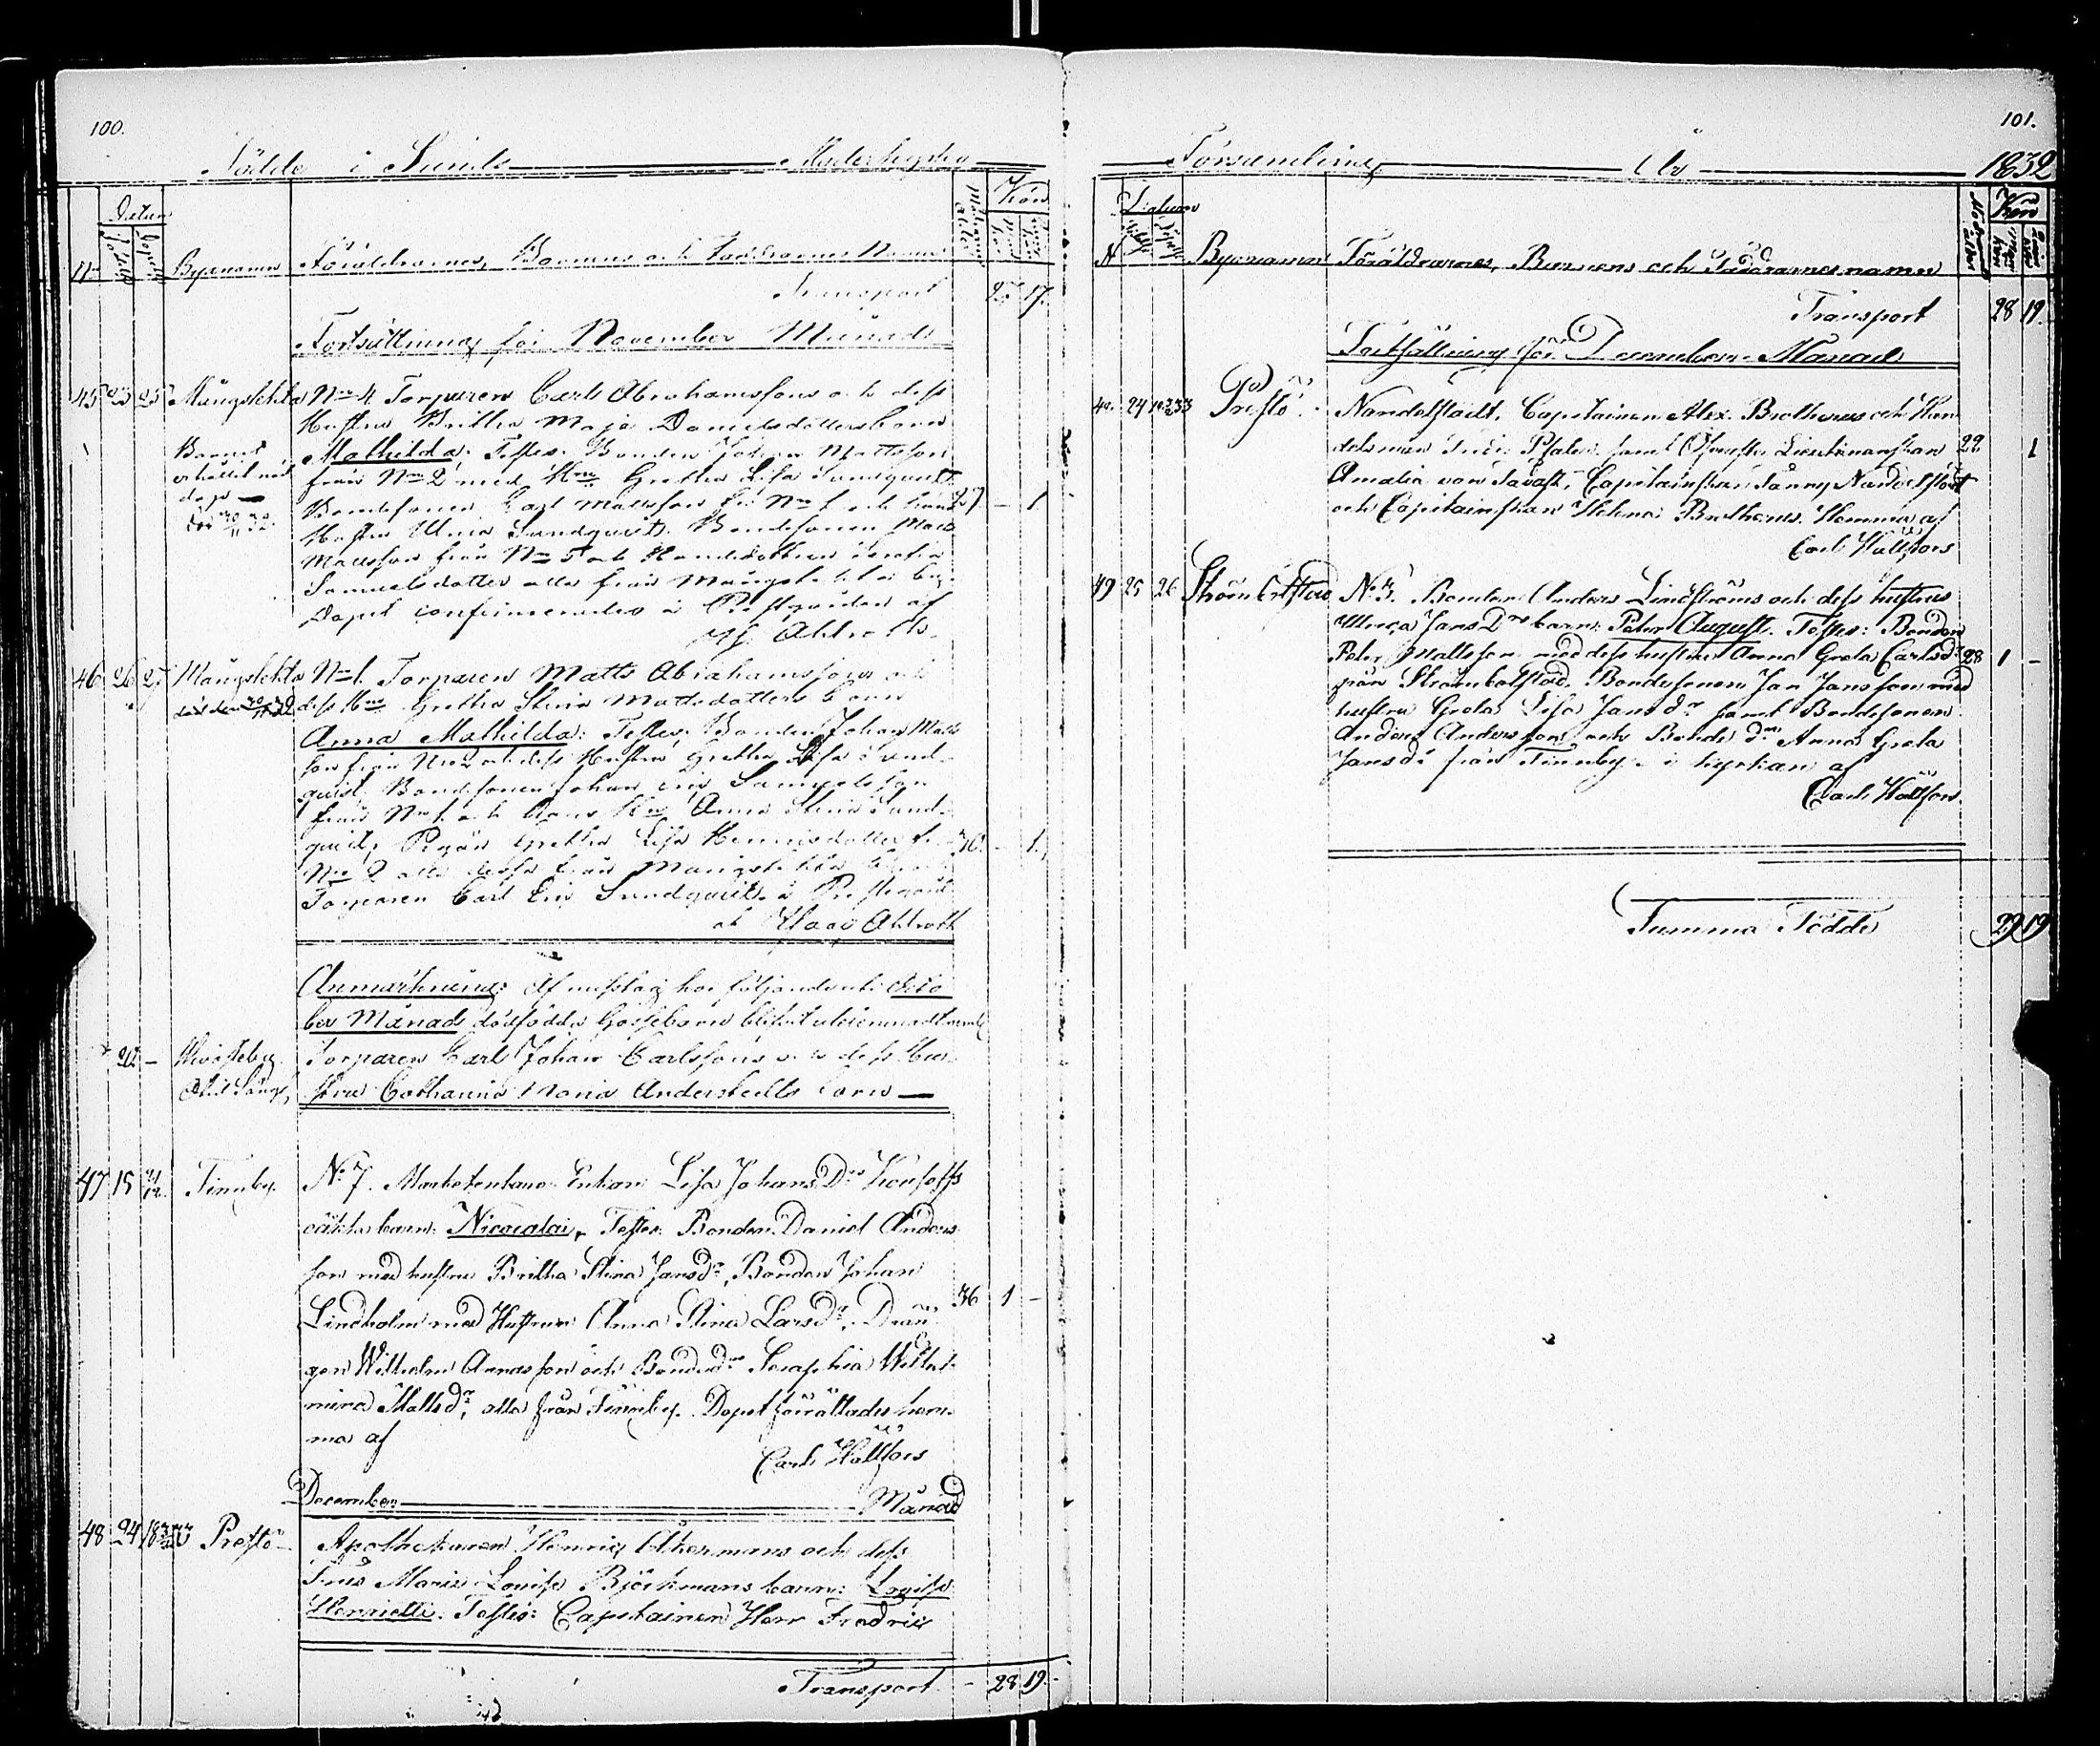 100.
Födde i Sunds Moderkyrko
Datum
Kön
No Födde Döpelse Byanamn Föräldrarnes, Barnens och Faddrarnes Namn
Transport 25 17.
Fortsättning för November Månad
45 23 25 Mångstekta No 4 Torparen Carl Abrahamssons och dess
Hustru Britha Maja Danielsdotters barn
Barnet
Mathilda; Testes: Bonden Johan Mattsson
erhållit nöd
från No 2 med Hru Gretha Lisa Sundquist
dop
Bondesonen Carl Mattsson fr. No 1 och hans 27. - 1.
död 30/11 32.
Hustru Ulrica Sundquist. Bondesonen Mats
Mattsson från No 5 och Bondedottren
Samuelsdotter alla från Mångstekta by.
Dopet confirmerades i Prestgården af
Ahlroth.
46 26 27 Mångstekta No 1. Torparen Matts Abrahamssons och
död den 30/11 32 dess Hru Gretha Stina Mattsdotters barn
Anna Mathilda: Testes; Bonden Johan Mats
son från No 2 och dess Hustru Gretha Lisa Sund-
quist. Bondesonen Johan Eric Samuelsson
från No 1. och dess Hru Anna Stina Sund-
quist, Pigan Gretha Lisa Henricsdotter fr. 30. - 1.
No 2 alla dessa från Mångstekta
Torparen Carl Eric Sundquist. i Prestgård.
af Isaac Ahlroth
Anmärkning: Af misstag har följande uti Octo
ber Månad dödfödda Gossebarn blifvit uteiemnadt neml.
20 - Torparen Carl Johan Carlssons och dess Hu-
stru Catharina Maria Anderstedts barn
47 15 Finnby. No 7. Marketentare Enkan Lisa Johans Drs
oäkta barn: Nicocalai, Testes: Bonden Daniel Anders
son med hustru Britha Stina Jansdr, Bonden Johan
Lindholm med Hustrun Anna Stina Larsdr, Drän- 36 1 -
gen Wilhelm Annasson och Bondedrn Seraphia Wilhel-
mina Mattsdr, alla från Finnby. Dopet förrättades hem-
ma af
Carl Hällfors
December Månad
48 24 Prestö Apothekaren Henric Åkermans och dess
Frus Maria Louisa Björkmans barn: Lovisa
Henrietta. Testes: Capitainen Herr Fredric
Transport. - 28 19 -
101.
Församling År 1832
Datum
Kön
N Byanamn Föräldrarnes, Barnens och Faddrarnes namn
Transport 28 19.
Fortsättning för December Månad
24 Prestö. Nandelstadt, Capitainen Alex. Brotherus och Han
delsman samt Öfverste Lieutenanskan 22 1
Amalia von Savast, Capitainskan Fanny Nandelstadt
och Capitainskan Helena Brotherus. Hemma af
Carl Hällfors
49 25 26 Strömbolstad No 3. Bonden Anders Lindströms och dess hustrus
Ulrica Jans Drs barn: Peter August. Testes: Bonden
Peter Mattsson med dess hustru Anna Greta Carlsdr 28 1 -
från Strömbolstad. Bondesonen Jan Jansson med
hustru Greta Lisa Jansdr samt Bondesonen
Anders Andersson och Bondedrn Anna Greta
Jansdr från Finnby. i kyrkan af
Carl Hällfors.
Summa Födde 29 19